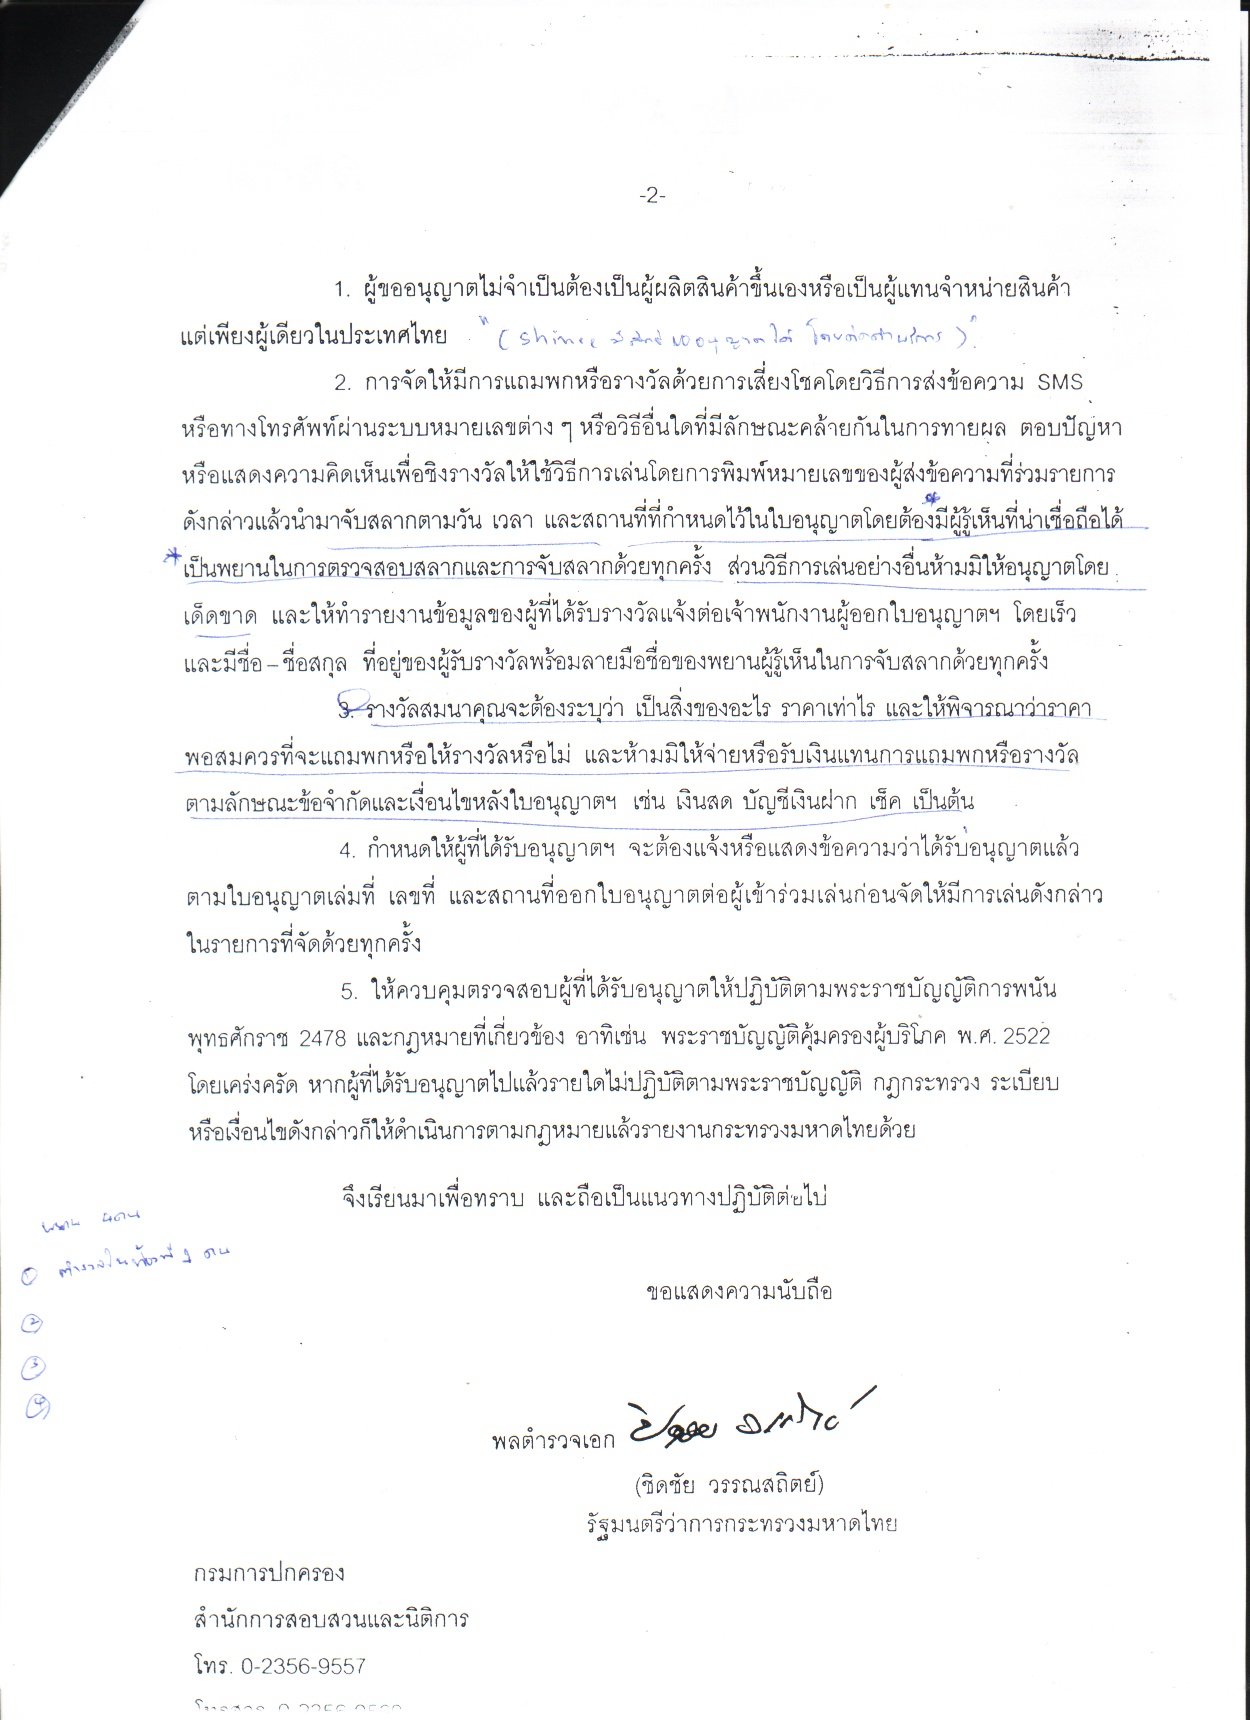 -2-
1. ผู้ขออนุญาตไม่จำเป็นต้องเป็นผู้ผลิตสินค้าขึ้นเองหรือเป็นผู้แทนจำหน่ายสินค้า
แต่เพียงผู้เดียวในประเทศไทย
2. การจัดให้มีการแถมพกหรือรางวัลด้วยการเสี่ยงโชคโดยวิธีการส่งข้อความ SMS
หรือทางโทรศัพท์ผ่านระบบหมายเลขต่าง ๆ หรือวิธีอื่นใดที่มีลักษณะคล้ายกันในการทายผล ตอบปัญหา
หรือแสดงความคิดเห็นเพื่อชิงรางวัลให้ใช้วิธีการเล่นโดยการพิมพ์หมายเลขของผู้ส่งข้อความที่ร่วมรายการ
ดังกล่าวแล้วนำมาจับสลากตามวัน เวลา และสถานที่ที่กำหนดไว้ในใบอนุญาตโดยต้องมีผู้รู้เห็นที่น่าเชื่อถือได้
เป็นพยานในการตรวจสอบสลากและการจับสลากด้วยทุกครั้ง ส่วนวิธีการเล่นอย่างอื่นห้ามมิให้อนุญาตโดย
เด็ดขาด และให้ทำรายงานข้อมูลของผู้ที่ได้รับรางวัลแจ้งต่อเจ้าพนักงานผู้ออกใบอนุญาตฯ โดยเร็ว
และมีชื่อ – ชื่อสกุล ที่อยู่ของผู้รับรางวัลพร้อมลายมือชื่อของพยานผู้รู้เห็นในการจับสลากด้วยทุกครั้ง
3. รางวัลสมนาคุณจะต้องระบุว่า เป็นสิ่งของอะไร ราคาเท่าไร และให้พิจารณาว่าราคา
พอสมควรที่จะแถมพกหรือให้รางวัลหรือไม่ และห้ามมิให้จ่ายหรือรับเงินแทนการแถมพกหรือรางวัล
ตามลักษณะข้อจำกัดและเงื่อนไขหลังใบอนุญาตฯ เช่น เงินสด บัญชีเงินฝาก เช็ค เป็นต้น
4. กำหนดให้ผู้ที่ได้รับอนุญาตฯ จะต้องแจ้งหรือแสดงข้อความว่าได้รับอนุญาตแล้ว
ตามใบอนุญาตเล่มที่ เลขที่ และสถานที่ออกใบอนุญาตต่อผู้เข้าร่วมเล่นก่อนจัดให้มีการเล่นดังกล่าว
ในรายการที่จัดด้วยทุกครั้ง
5. ให้ควบคุมตรวจสอบผู้ที่ได้รับอนุญาตให้ปฏิบัติตามพระราชบัญญัติการพนัน
พุทธศักราช 2478 และกฎหมายที่เกี่ยวข้อง อาทิเช่น พระราชบัญญัติคุ้มครองผู้บริโภค พ.ศ. 2522
โดยเคร่งครัด หากผู้ที่ได้รับอนุญาตไปแล้วรายใดไม่ปฏิบัติตามพระราชบัญญัติ กฎกระทรวง ระเบียบ
หรือเงื่อนไขดังกล่าวก็ให้ดำเนินการตามกฎหมายแล้วรายงานกระทรวงมหาดไทยด้วย
จึงเรียนมาเพื่อทราบ และถือเป็นแนวทางปฏิบัติต่อไป
พยาน 4 คน
① ตำรวจในท้องที่ 1 คน
②
③
④
ขอแสดงความนับถือ
พลตำรวจเอก
(ชิดชัย วรรณสถิตย์)
รัฐมนตรีว่าการกระทรวงมหาดไทย
กรมการปกครอง
สำนักการสอบสวนและนิติการ
โทร. 0-2356-9557